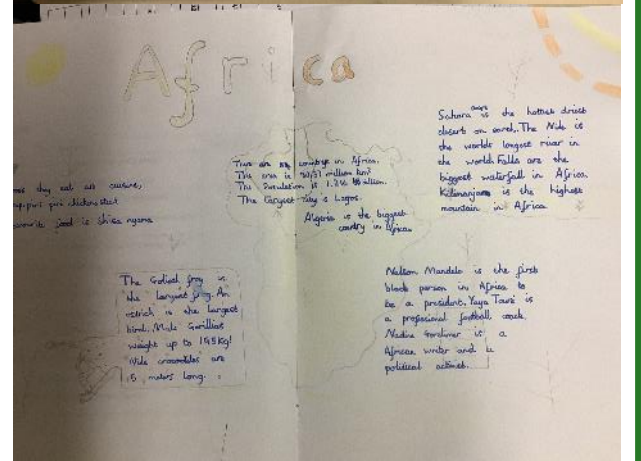 Africa
Sahara is the hottest driest
desert on earth. The Nile is
the worlds longest river in
the world. Falls are the
biggest waterfall in Africa.
Kilimanjaro is the highest
mountain in Africa
There are countrys in Africa.
This area is 30,37 million km²
The Population is 1.2 billion.
The Largest City is Lagos.
Algeria is the biggest
country in Africa.
they eat are cuisine,
piri piri chicken
food is Shisa nyama
The Goliath frog is
the largest frog. An
ostrich is the largest
bird. Male Gorillias
weight up to 195Kg!
Nile crocodiles are
5 meters long.
Nelson Mandela is the first
black person in Africa to
be a president. Yaya Toure is
a professional football coach.
Nadine Gordimer is a
African writer and a
political activist.